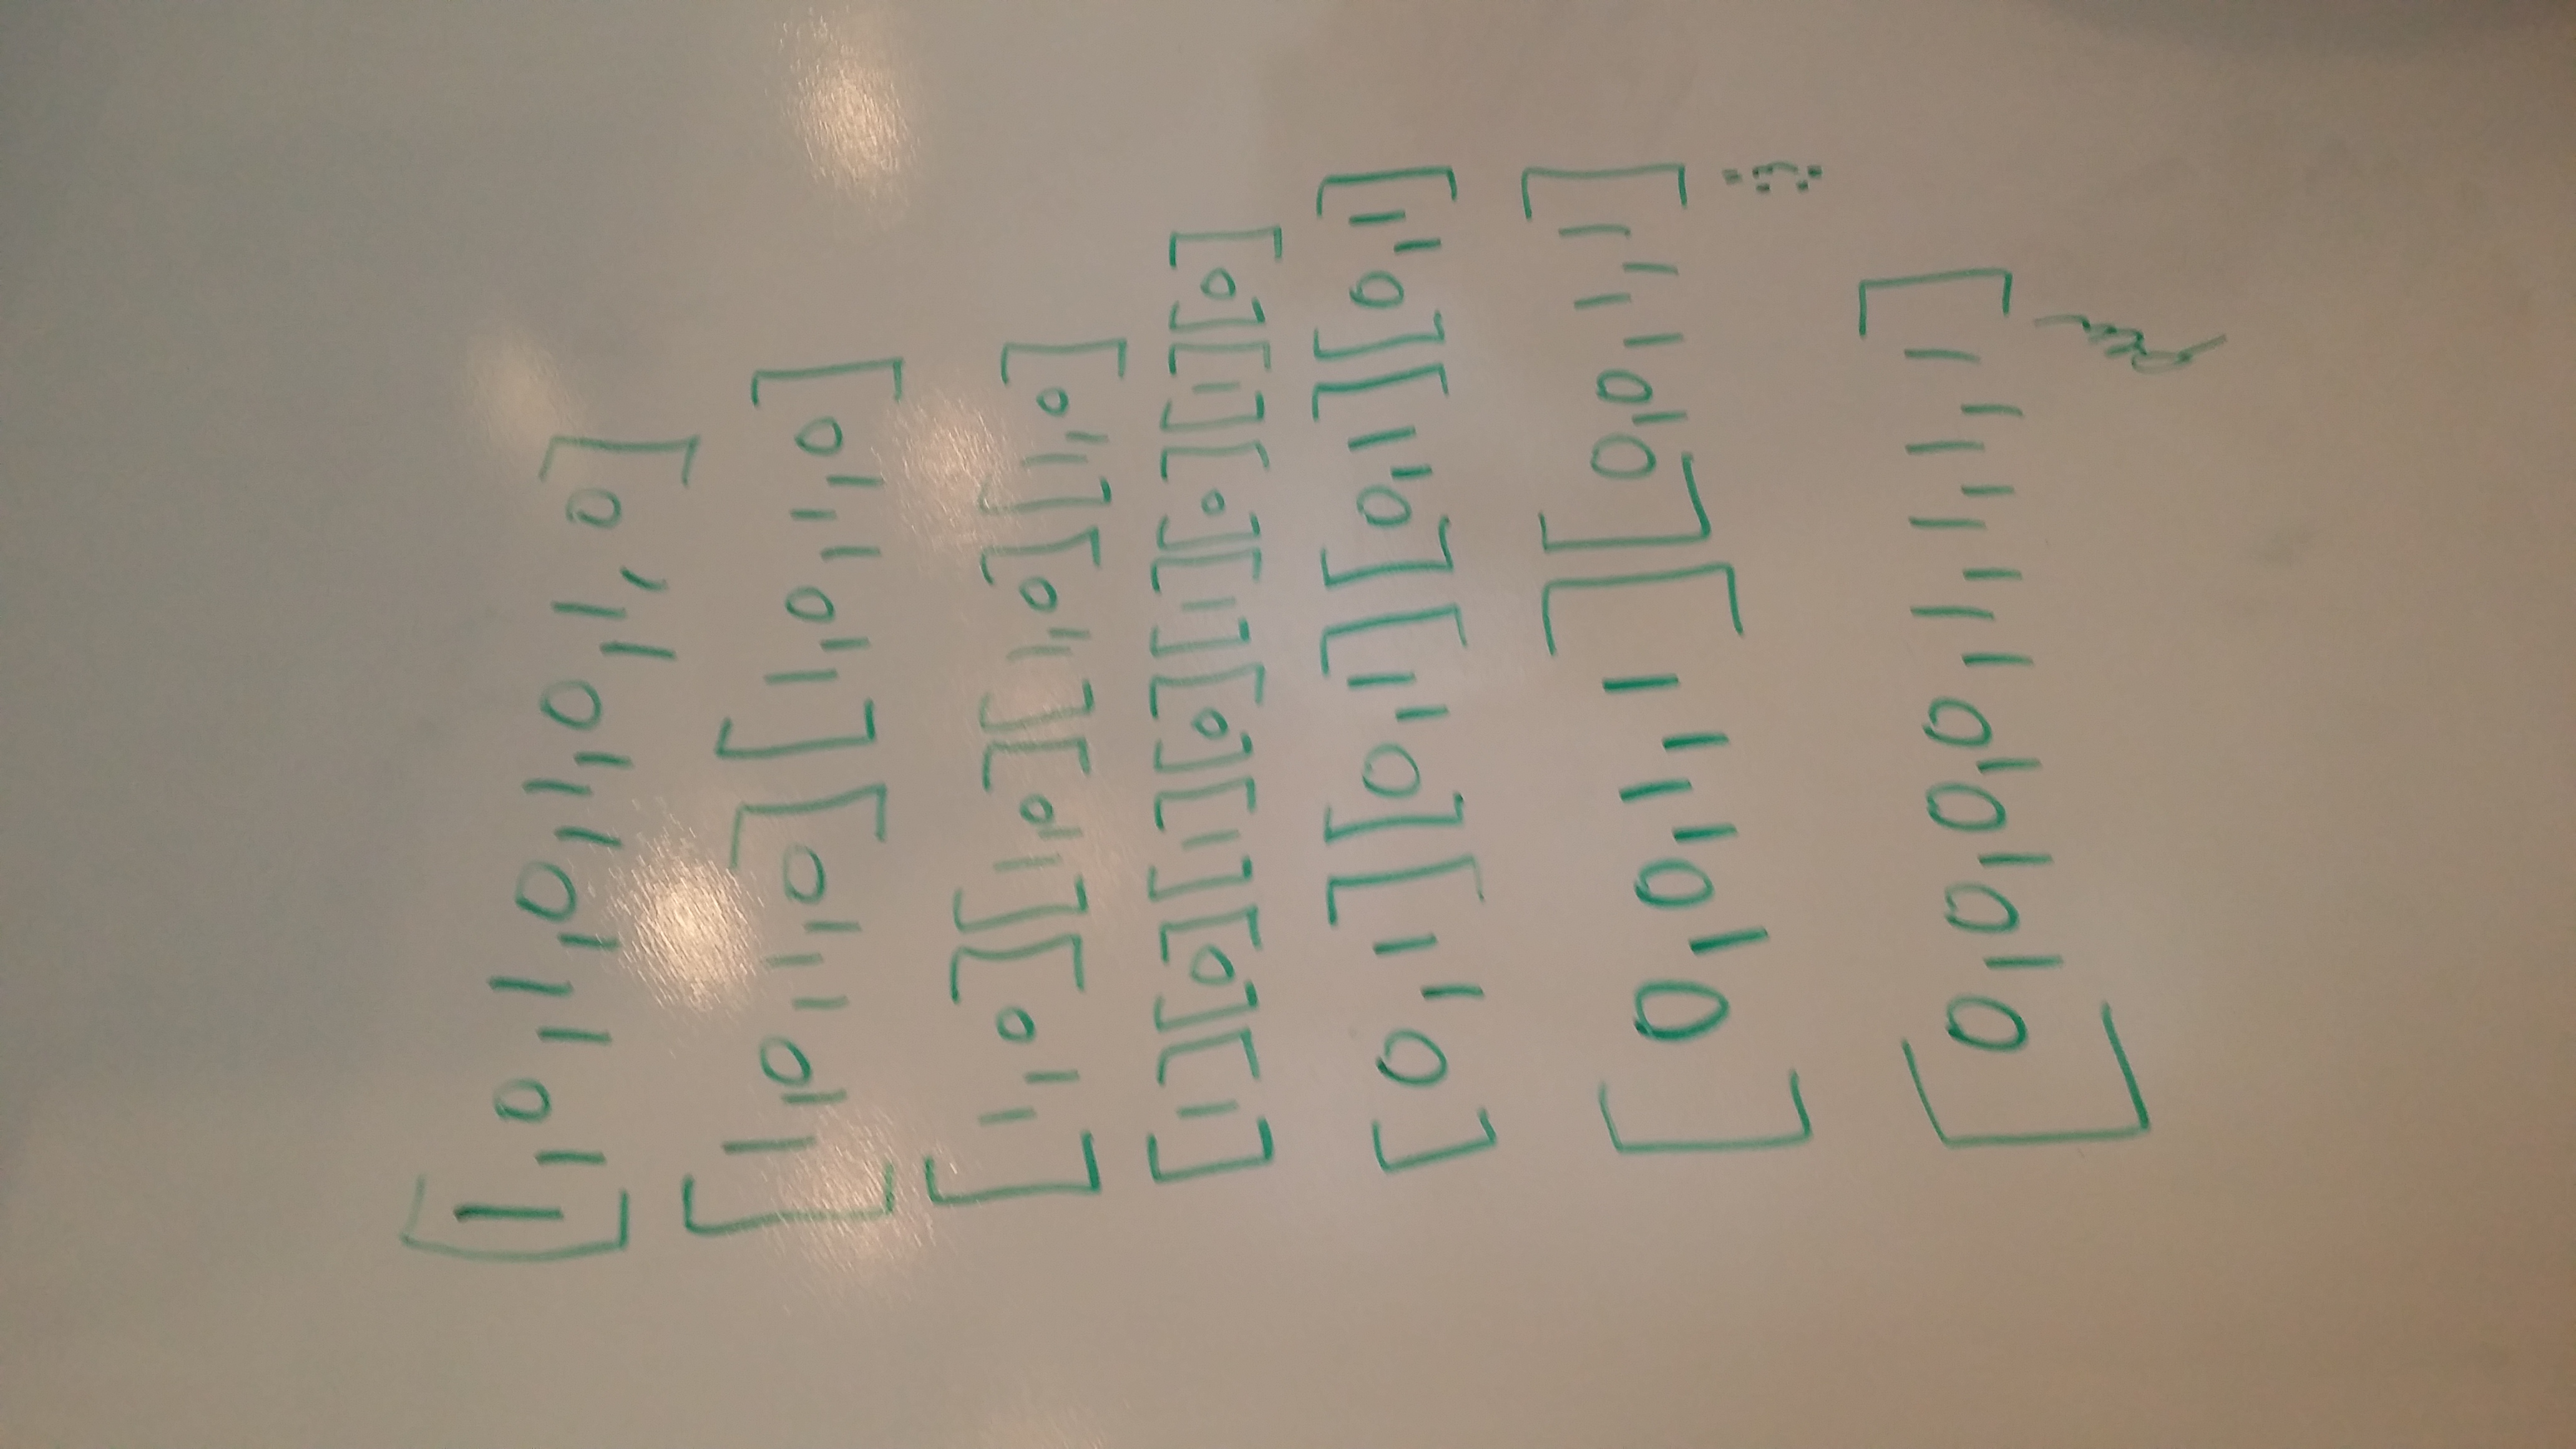 [1,0,1,0,1,0,1,0]
[1,0,1,0][1,0,1,0]
[1,0][1,0][1,0][1,0]
[1][0][1][0][1][0][1][0]
[0,1][0,1][0,1][0,1]
[0,0,1,1][0,0,1,1]
[0,0,0,0,1,1,1,1]